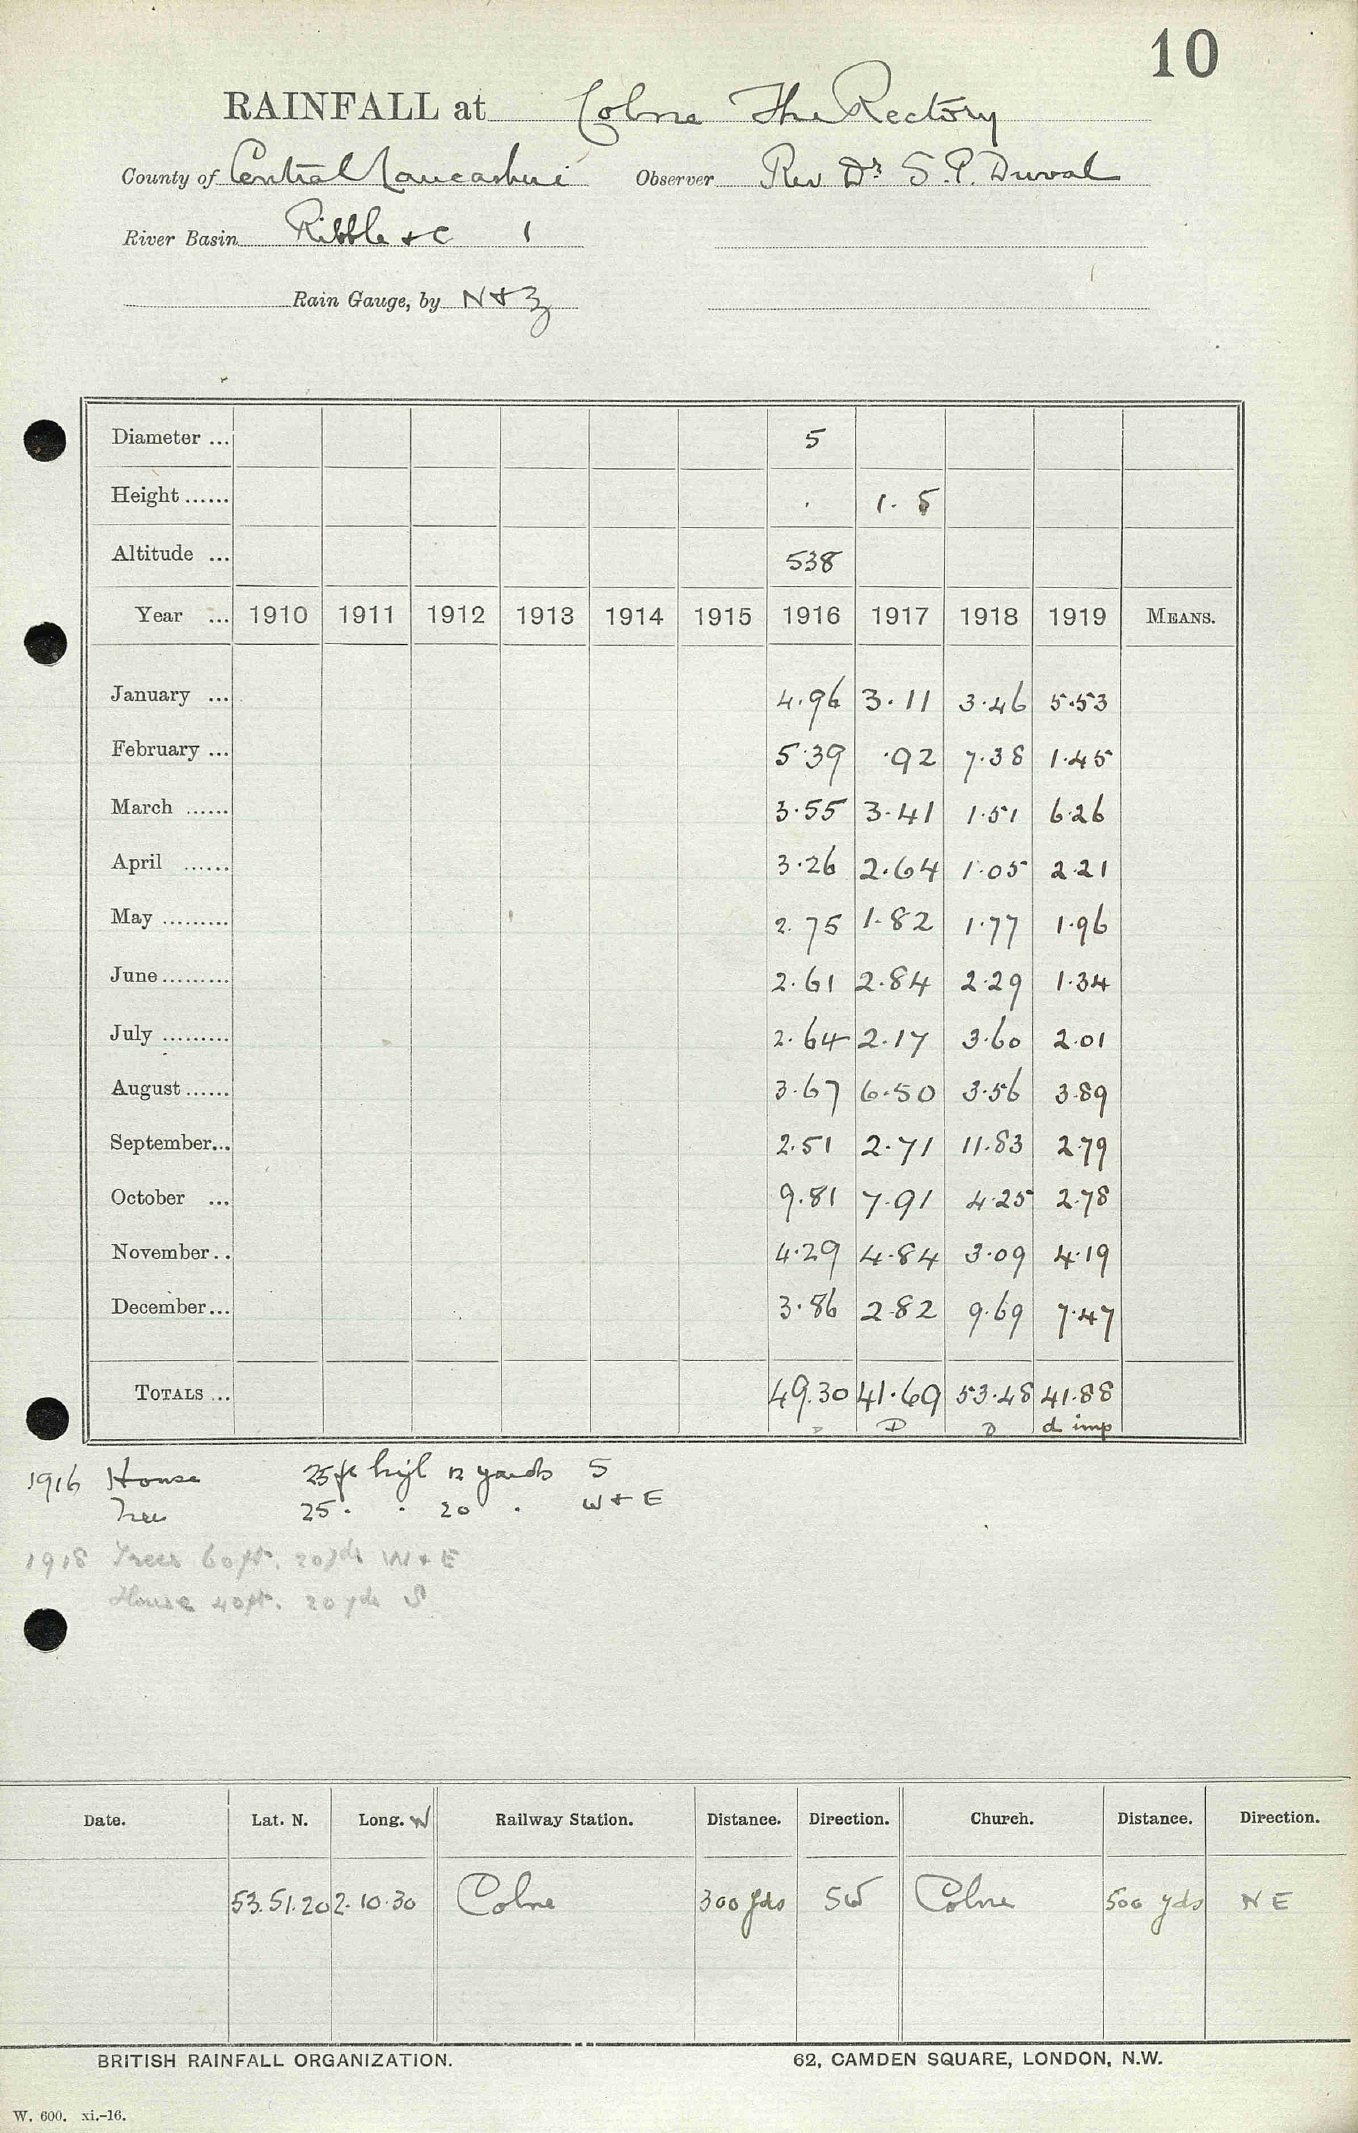 10
RAINFALL at Colne The Rectory
County of Central Lancashire Observer Rev Dr S. P. Duval
River Basin Ribble &c 1
Rain Gauge, by N & Z
Diameter ... 5
Height ...... 1.5
Altitude ... 538
Year ... 1910 1911 1912 1913 1914 1915 1916 1917 1918 1919 MEANS.
January ... 4.96 3.11 3.46 5.53
February ... 5.39 .92 7.38 1.45
March ...... 3.55 3.41 1.51 6.26
April ...... 3.26 2.64 1.05 2.21
May ......... 2.75 1.82 1.77 1.96
June ......... 2.61 2.84 2.29 1.34
July ......... 2.64 2.17 3.60 2.01
August ...... 3.67 6.50 3.56 3.89
September... 2.51 2.71 11.83 2.79
October ... 9.81 7.91 4.25 2.78
November .. 4.29 4.84 3.09 4.19
December... 3.86 2.82 9.69 7.47
TOTALS ... 49.30 41.69 53.48 41.88
D D D d imp
1916 House 25 ft high 12 yards S
Tree 25 . . 20 . W & E
1918 Trees 60 ft. 20 yds W & E
House 40 ft. 20 yds S
Date. Lat. N. Long. W Railway Station. Distance. Direction. Church. Distance. Direction.
53.51.20 2.10.30 Colne 300 yds SW Colne 500 yds NE
BRITISH RAINFALL ORGANIZATION. 62, CAMDEN SQUARE, LONDON, N.W.
W. 600. xi.-16.